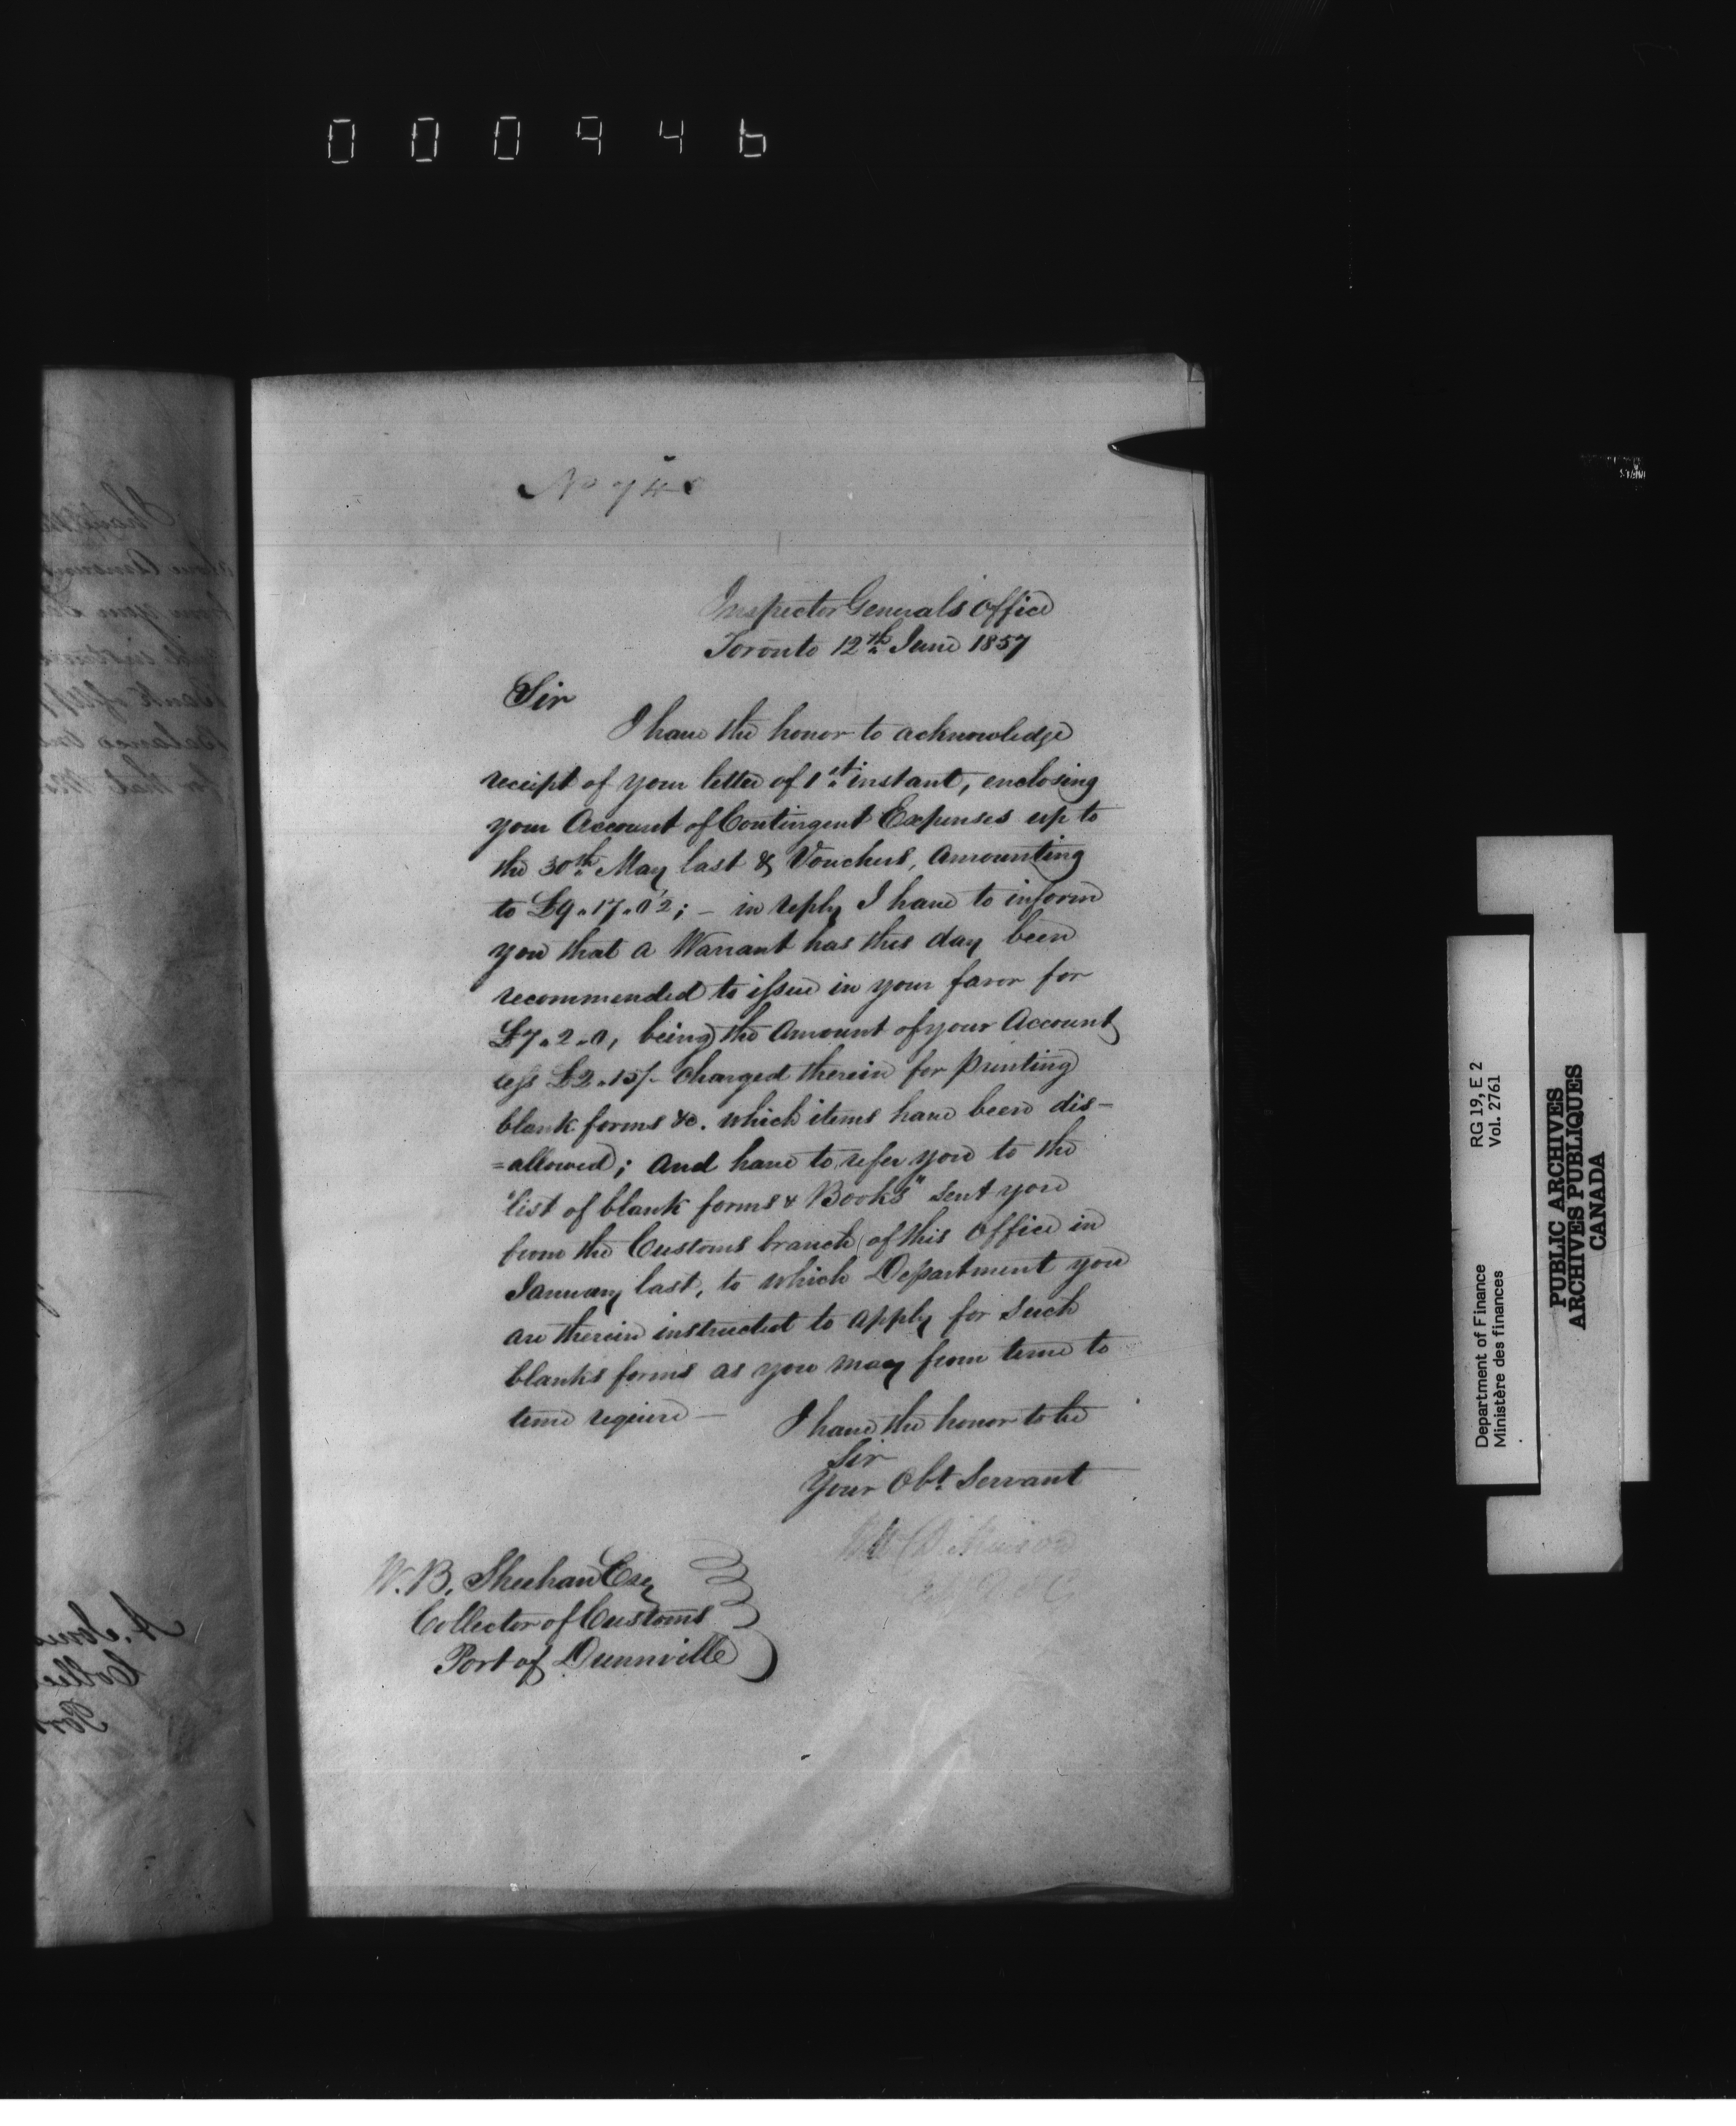 000946
No 74
Inspector Generals Office
Toronto 12th June 1857
Sir
I have the honor to acknowledge
receipt of your letter of 1st instant, enclosing
your Account of Contingent Expenses up to
the 30th May last & Vouchers, amounting
to £9.17.02; – in reply I have to inform
you that a Warrant has this day been
recommended to issue in your favor for
£7.2.0, being the Amount of your Account
less £2.15/- charged therein for printing
blank forms &c. which items have been dis-
=allowed; and have to refer you to the
"list of blank forms & Books" sent you
from the Customs branch of this office in
January last, to which Department you
are therein instructed to apply for such
blanks forms as you may from time to
time require –
I have the honor to be
Sir
Your Obt. Servant
W. B. Sheehan Esq
Collector of Customs
Port of Dunnville
Department of Finance RG 19, E 2
Ministère des finances Vol. 2761
PUBLIC ARCHIVES
ARCHIVES PUBLIQUES
CANADA